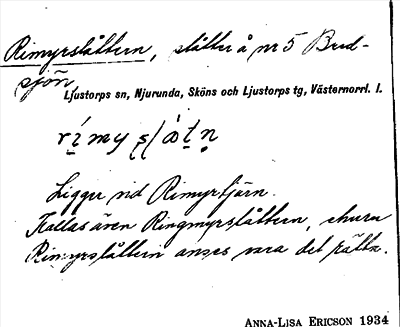 Rimyrslåttern, slåtter å nr 5 Bud-
sjön
Ljustorps sn, Njurunda, Sköns och Ljustorps tg, Västernorrl. l.
Ligger vid Rimyrtjärn.
Kallas även Ringmyrslåttern, ehuru
Rimyrslåttern anses vara det rätta.
ANNA-LISA ERICSON 1934